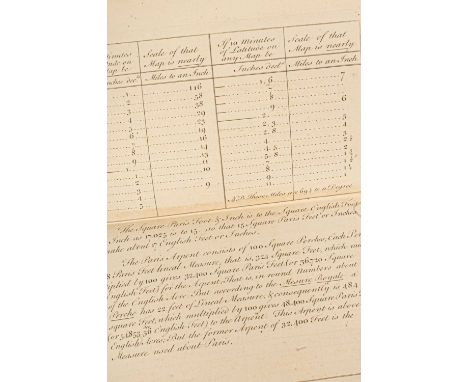 Minutes
Scale of that
Map is nearly
If 10 Minutes
of Latitude on
any Map be
Scale of that
Map is nearly
Miles to an Inch
Inches dec.
Miles to an Inch
.1 116
.2 58
.3 38
.4 29
.5 23
.6 19
.7 16
.8 14
.9 13
1. 11
.1 10
.2
.3 9
.4
.5
1. 6 7
.7
.8
.9 6
N.B. These Miles are 69½ to a Degree
The Square Paris Foot & Inch is to the Square English Foot
Inch as 17.025 is to 15, so that 15 Square Paris Feet or Inches
make about 17 English Feet or Inches.
The Paris Arpent consists of 100 Square Perches, Each Perche
18 Paris Feet lineal Measure, that is, 324 Square Feet, which mul
tiplied by 100 gives 32,400 Square Paris Feet (or 36720 Square
English Feet) for the Arpent. That is, in round Numbers about
of the English Acre. But according to the Mesure Royale a
Perche has 22 feet of Lineal Measure, & consequently is 484
square Feet, which multiplied by 100 gives 48,400 Square Paris
(or 54853.36 English Feet) to the Arpent. This Arpent is above
English Acres; But the former Arpent of 32,400 Feet is the
Measure used about Paris.